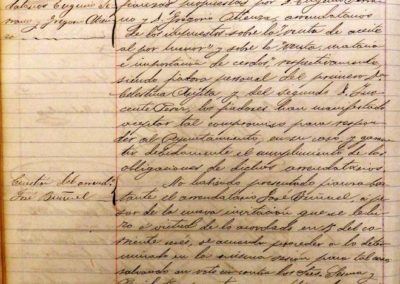 fianzas propuestas por D. Eugenio
no y D. Gregorio Atienza, arrendatarios
de los impuestos sobre la venta de aceite
al por menor y sobre la venta, matanza
é importación de cerdos, respectivamente,
siendo fiadora personal del primero Dª
Celestina y del segundo D.
cente los fiadores han manifestado
aceptar tal compromiso para respon-
der al Ayuntamiento, en su caso, y garan-
tir debidamente el cumplimiento de las
obligaciones de dichos arrendatarios.
Cuestión del arrendº
José
No habiendo presentado fianza bas-
tante el arrendatario José á pe-
sar de la nueva invitación que se le hi-
zo á virtud de lo acordado en del co-
rriente mes, se acuerda proceder á lo deter-
minado en la misma sesión para tal caso,
salvando su voto en contra los Sres. y